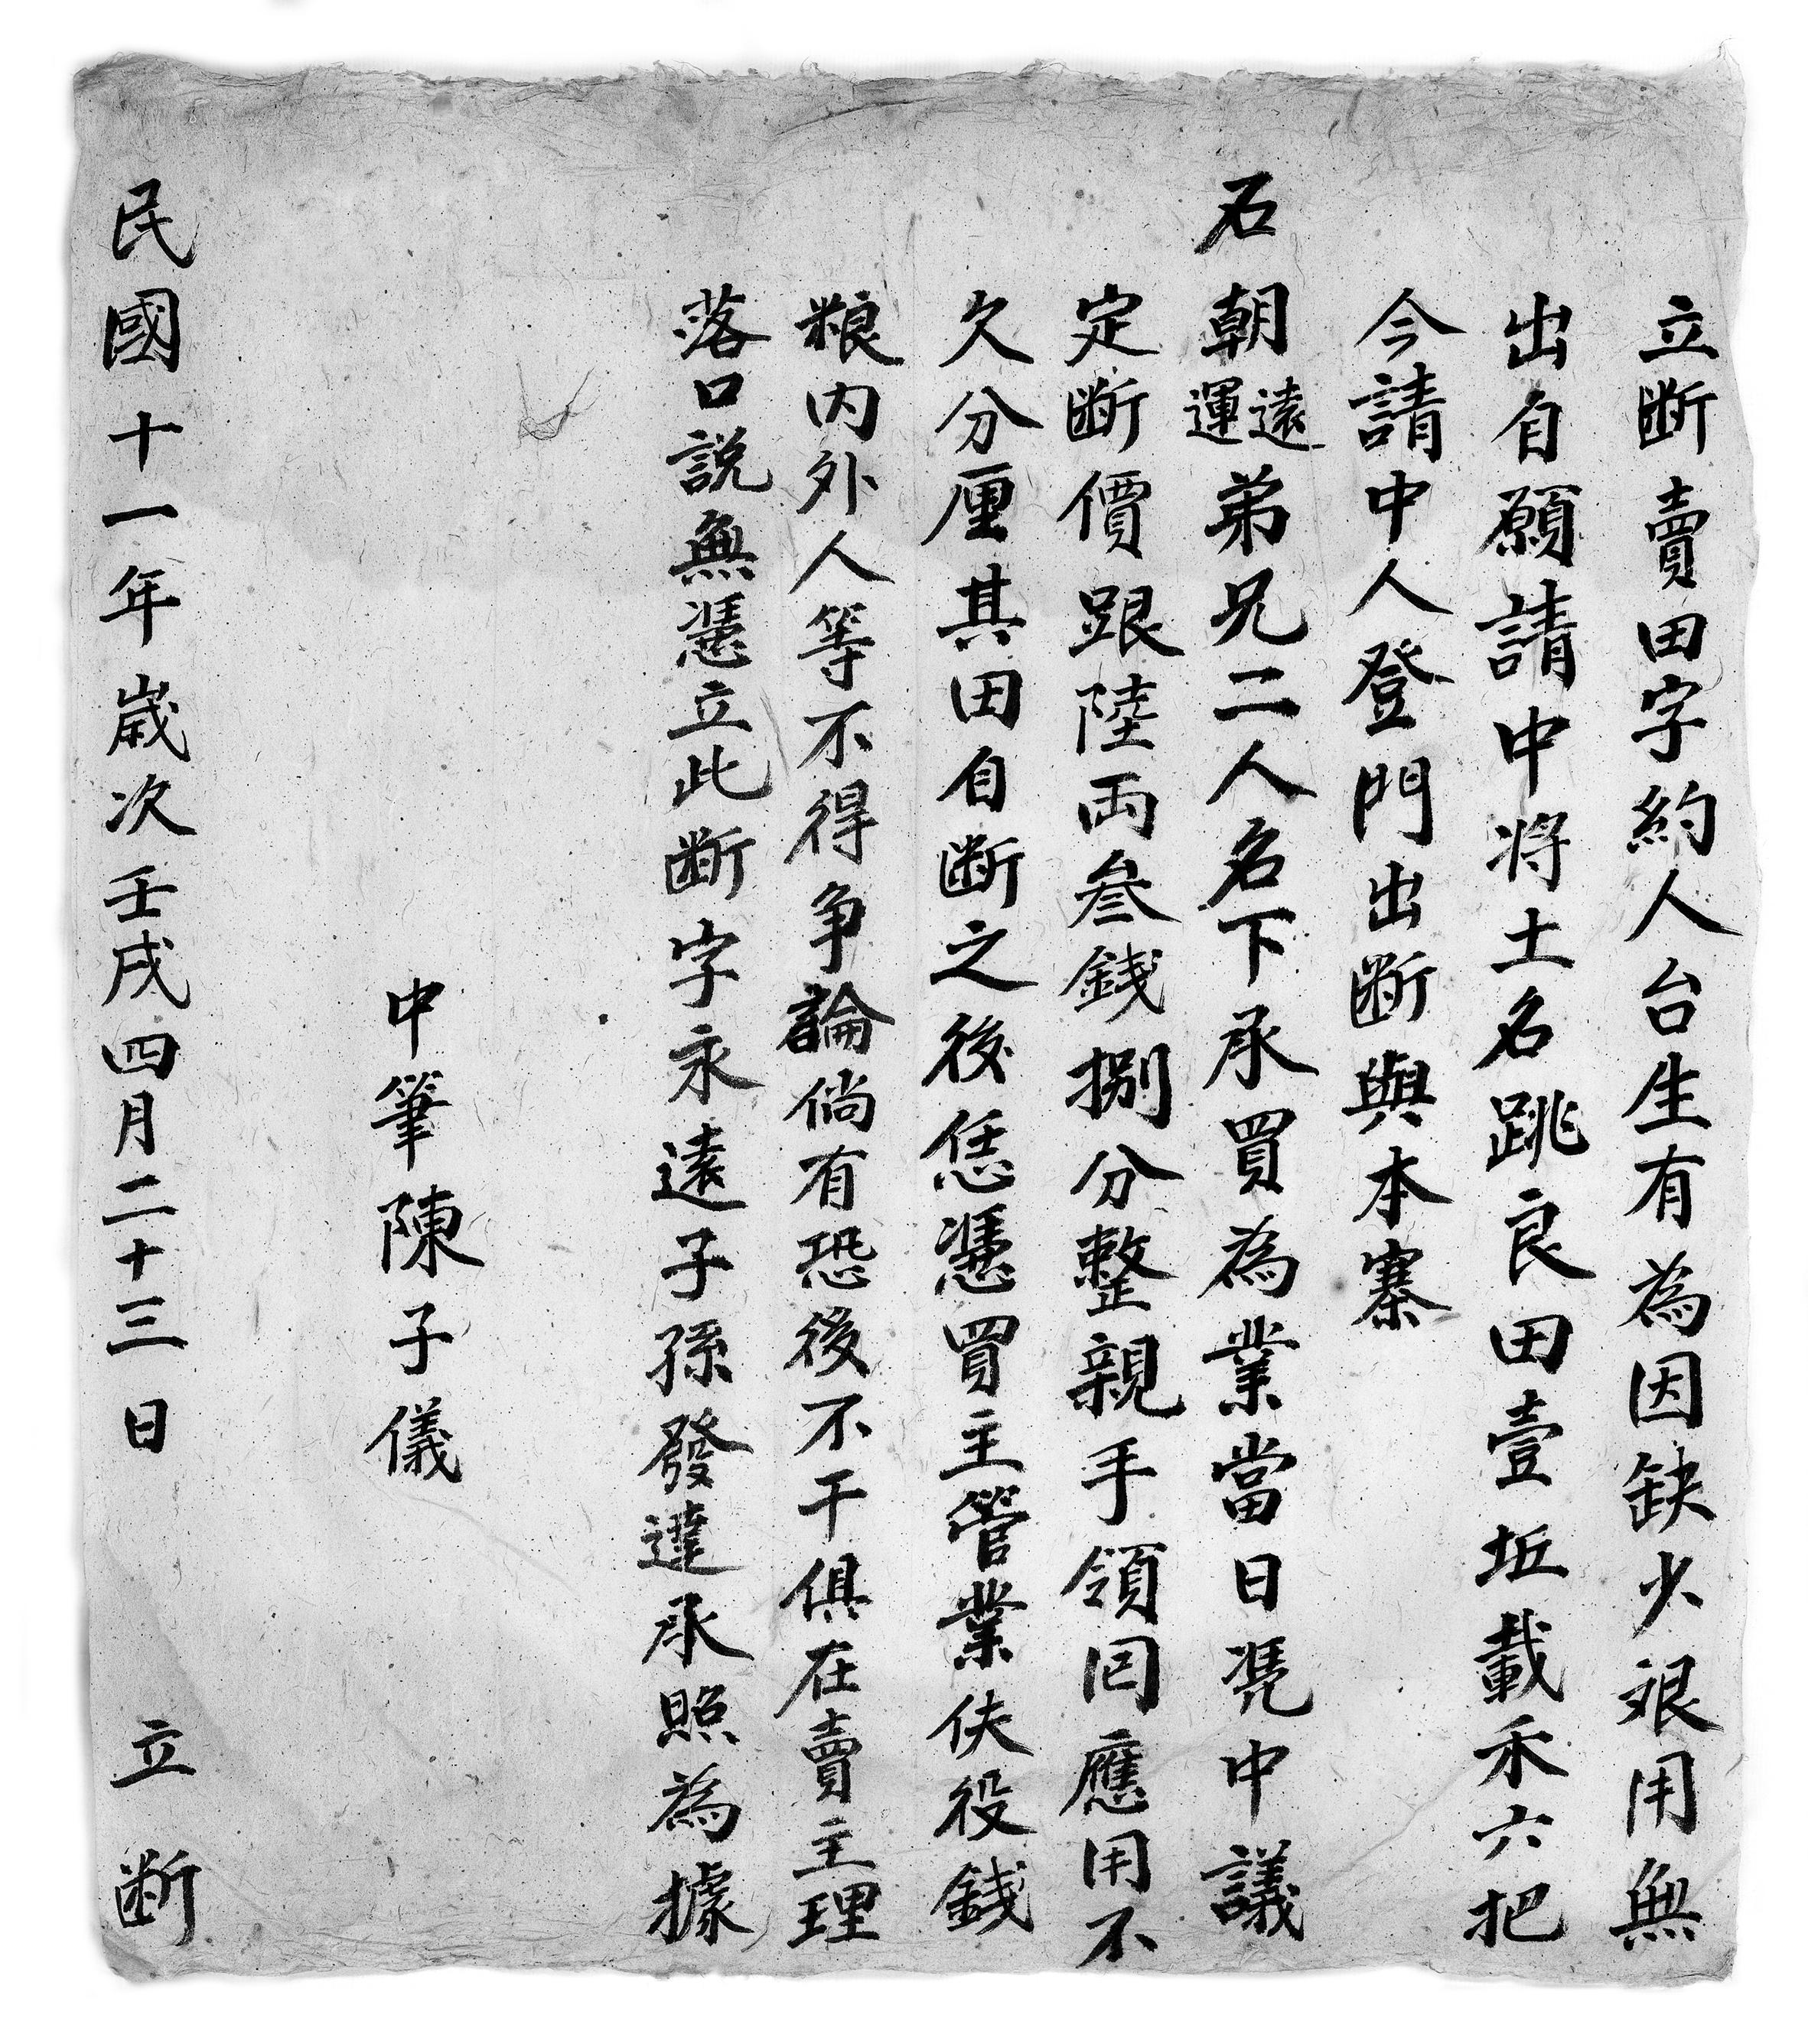 立断賣田字約人台生有為因缺少艰用無
出自願請中将土名跳良田壹坵載禾六把
今請中人登門出断與本寨
石朝運遠弟兄二人名下承買為業當日凴中議
定断價跟陸両叁錢捌分整親手領回應用不
欠分厘其田自断之後恁憑買主管業伕役錢
粮内外人等不得争論倘有恐後不干俱在賣主理
落口説無憑立此断字永遠子孫發達承照為據
中筆陳子儀
民國十一年歲次壬戌四月二十三日 立断